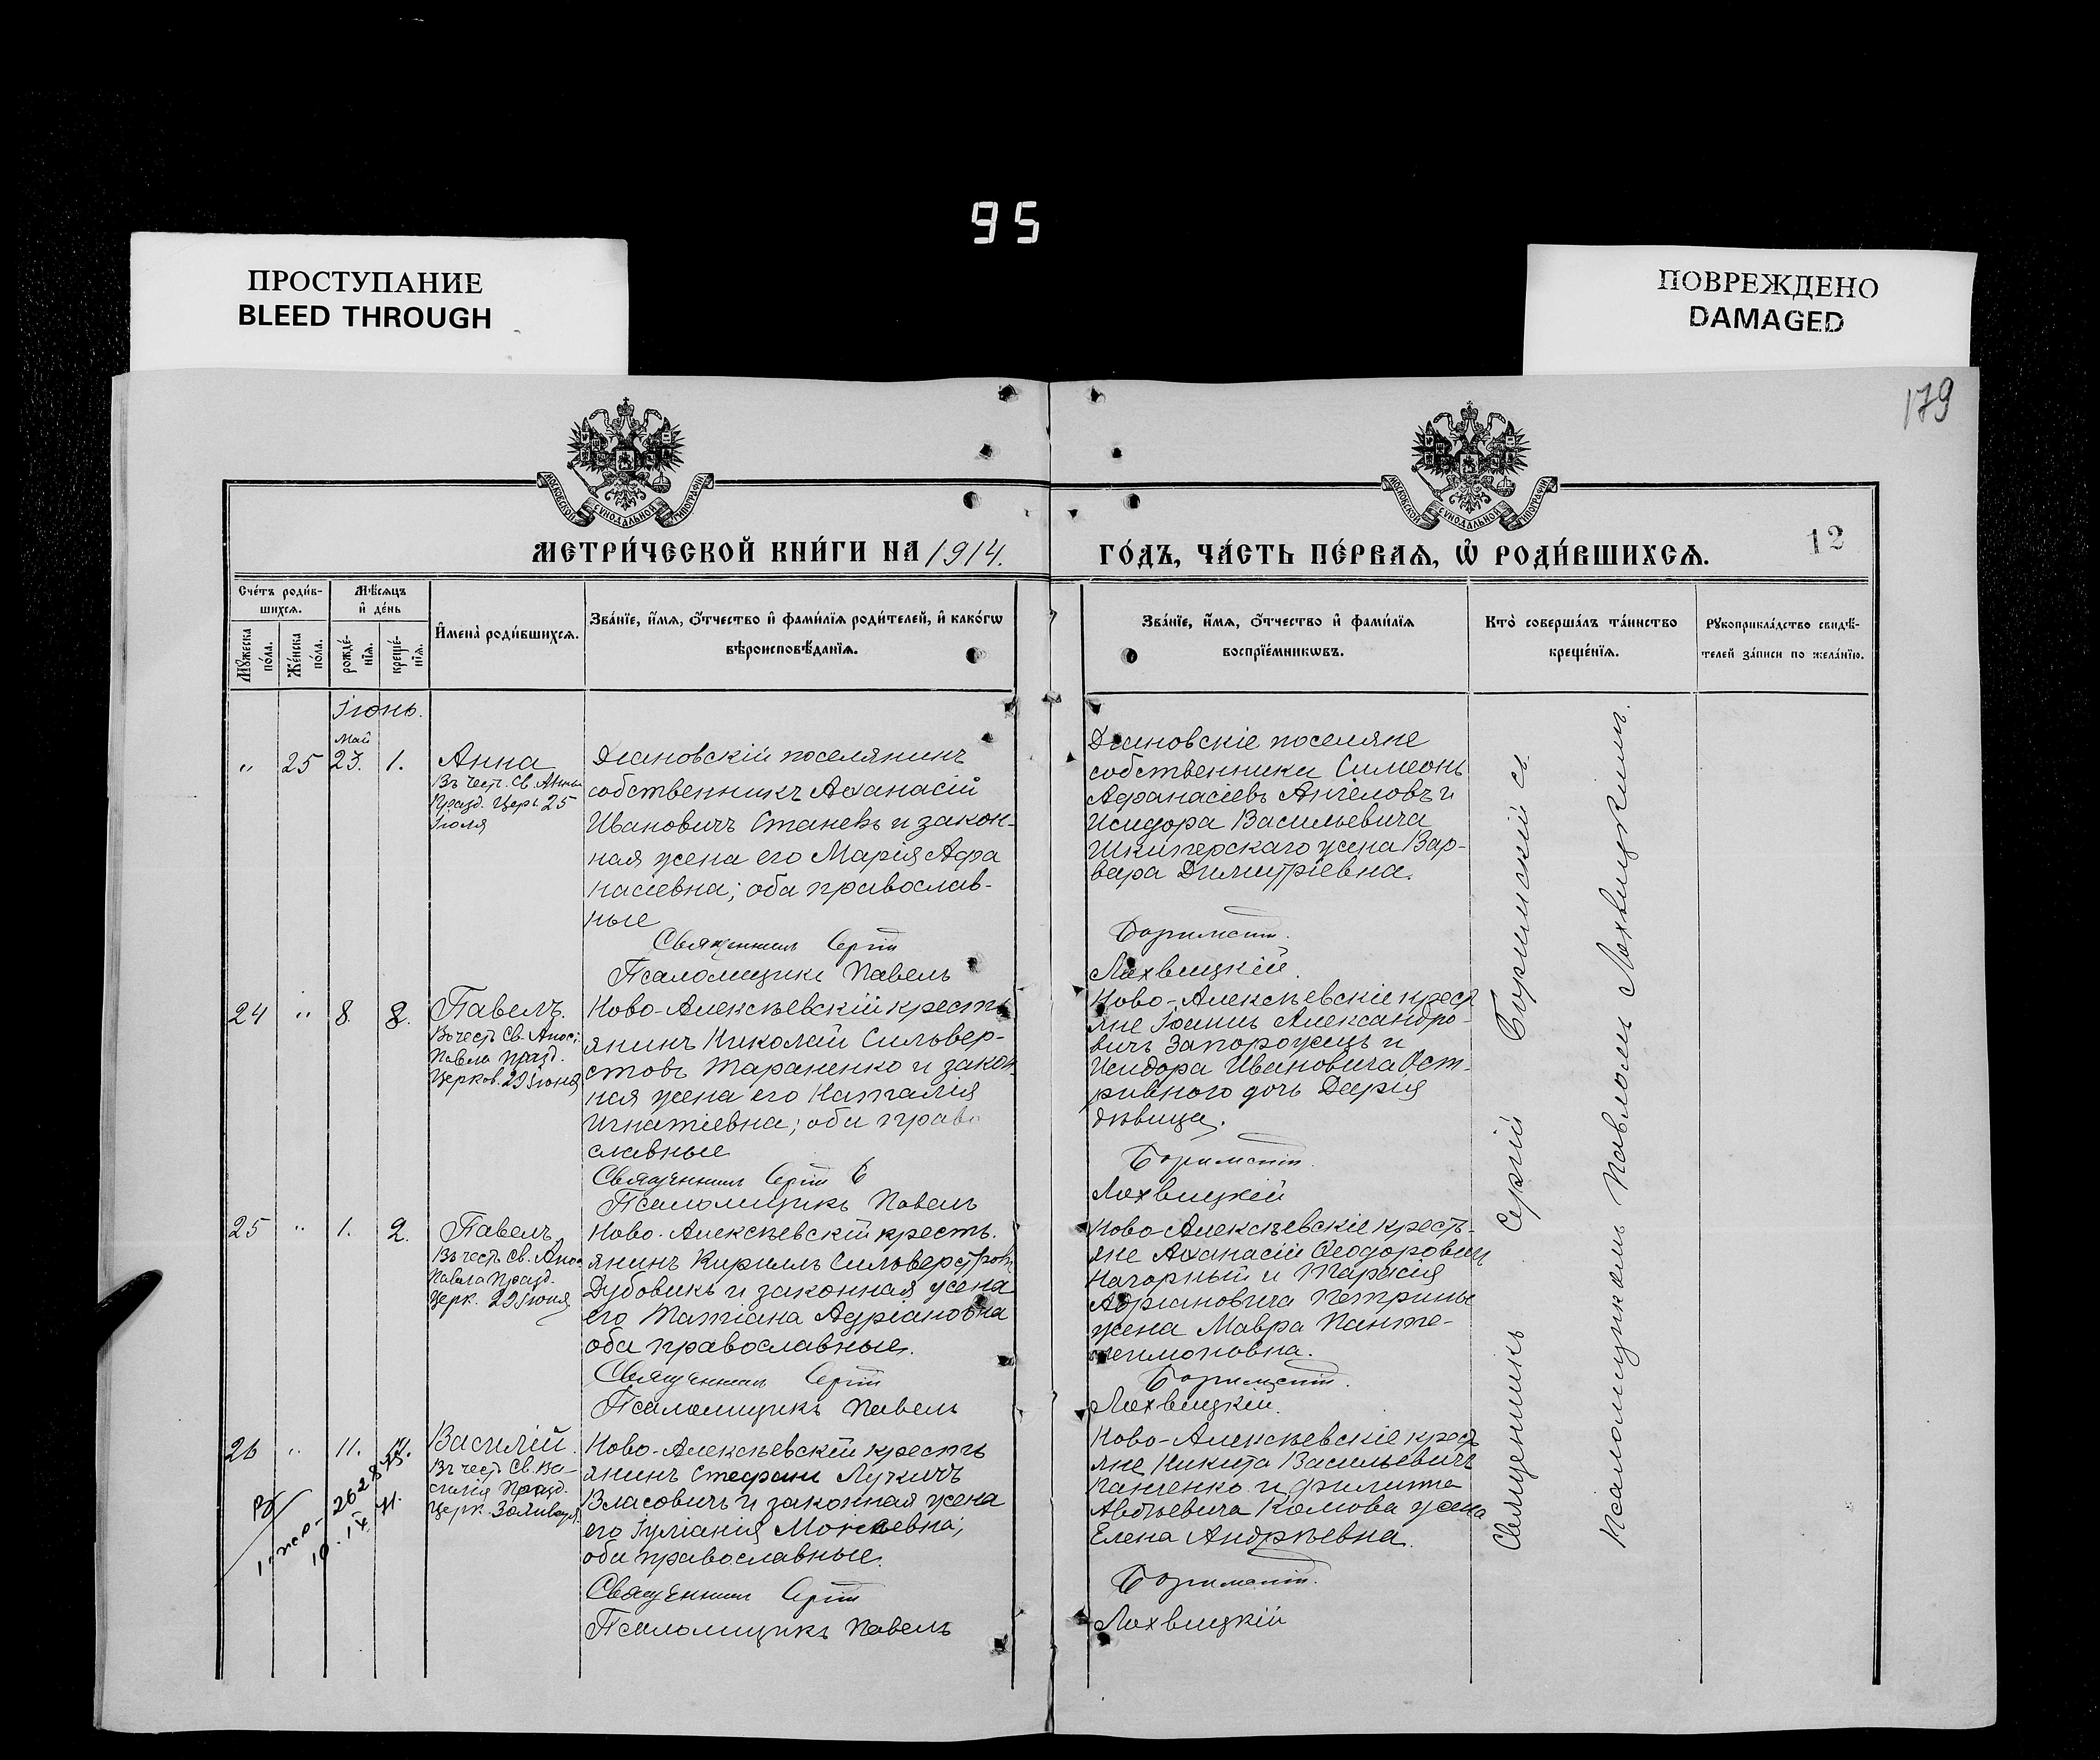 95
ПРОСТУПАНИЕ
BLEED THROUGH
ПОВРЕЖДЕНО
DAMAGED
179
МОСКОВСКОЙ СѴНОДАЛЬНОЙ ТИПОГРАФІИ
МОСКОВСКОЙ СѴНОДАЛЬНОЙ ТИПОГРАФІИ
МЕТРИ́ЧЕСКОЙ КНИ́ГИ НА 1914.
ГО́ДЪ, ЧА́СТЬ ПЕ́РВАѦ, Ѡ҆ РОДИ́ВШИХСѦ.
12
Сче́тъ роди́в-
шихсѧ.
Мѣ́сѧцъ
и҆ де́нь
Мꙋ́жеска
по́ла.
Же́нска
по́ла.
рожде́-
нїѧ.
креще́-
нїѧ.
И҆мена̀ роди́вшихсѧ.
Зва́нїе, и҆́мѧ, ѻ҆́тчество и҆ фами́лїѧ роди́телей, и҆ како́гѡ
вѣроисповѣ́данїѧ.
Зва́нїе, и҆́мѧ, ѻ҆́тчество и҆ фами́лїѧ
воспрїе́мникѡвъ.
Кто̀ соверша́лъ та́инство
креще́нїѧ.
Рꙋкоприкла́дство свидѣ́-
телей за́писи по жела́нїю.
Іюнь.
Май
" 25 23. 1.
Анна
Въ чест. Св. Анны
Празд. Церк 25
Іюля
Діановскій поселянинъ
собственникъ Аѳанасій
Ивановичъ Станевъ и закон-
ная жена его Марія Афа
насіевна; оба православ-
ные
Священник Сергій
Псаломщикъ Павелъ
Діановскіе поселяне
собственники Симеонъ
Афанасіевъ Ангеловъ и
Исидора Васильевича
Шкиперскаго жена Вар-
вара Димитріевна.
Лохвицкій.
24 " 8. 8.
Павелъ.
Въ честь Св. Апос:
Павла празд.
Церков. 29 Іюня
Ново-Алексѣевскій кресть
янинъ Николай Сильвер-
стовъ Тараненко и закон-
ная жена его Наталія
Игнатіевна; оба право
славные
Священник Сергій Б
Псаломщикъ Павелъ
Ново-Алексѣевскіе крест
яне Іоаннъ Александро-
вичъ Запорожецъ и
Исидора Ивановича Ост-
ривного дочь
дѣвица.
Лохвицкій
25 " 1. 2.
Павелъ
Въ честь Св. Апос
Павла празд.
Церк. 29 Іюня
Ново-Алексѣевскій кресть-
янинъ Кириллъ Сильверстров
Дубовикъ и законная жена
его Татіана Адріановна
оба православные.
Священник Сергій
Псаломщикъ Павелъ
Ново-Алексѣевскіе кресть-
яне Аѳанасій Ѳеодорович
Нагорный и Тарасія
Адріановича Петрины
жена Мавра Панте-
леимоновна.
Лохвицкій.
26 " 11.
Василій.
Въ честь Св. Ва-
силія празд.
Церк. 30 Января.
Ново-Алексѣевскій кресть
янинъ Стефанъ Лукичъ
Власовичъ и законная жена
его Іуліанія Моисеевна;
оба православные.
Священник Сергій
Псаломщикъ Павелъ
Ново-Алексѣевскіе крест
яне Никита Васильевичъ
Панченко и Филиппа
Авдѣевича Комова жена
Елена Андрѣевна.
Лохвицкій
Священникъ Сергій Боримскій съ
Псаломщикомъ Павломъ Лохвицкимъ.